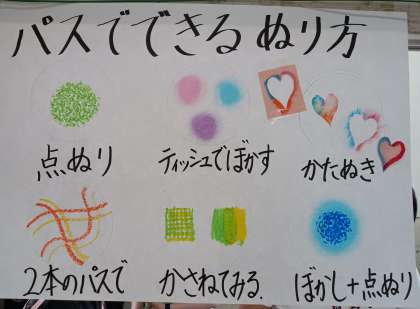 パスでできるぬり方
点ぬり
ティッシュでぼかす
かたぬき
2本のパスで
かさねてみる.
ぼかし+点ぬり